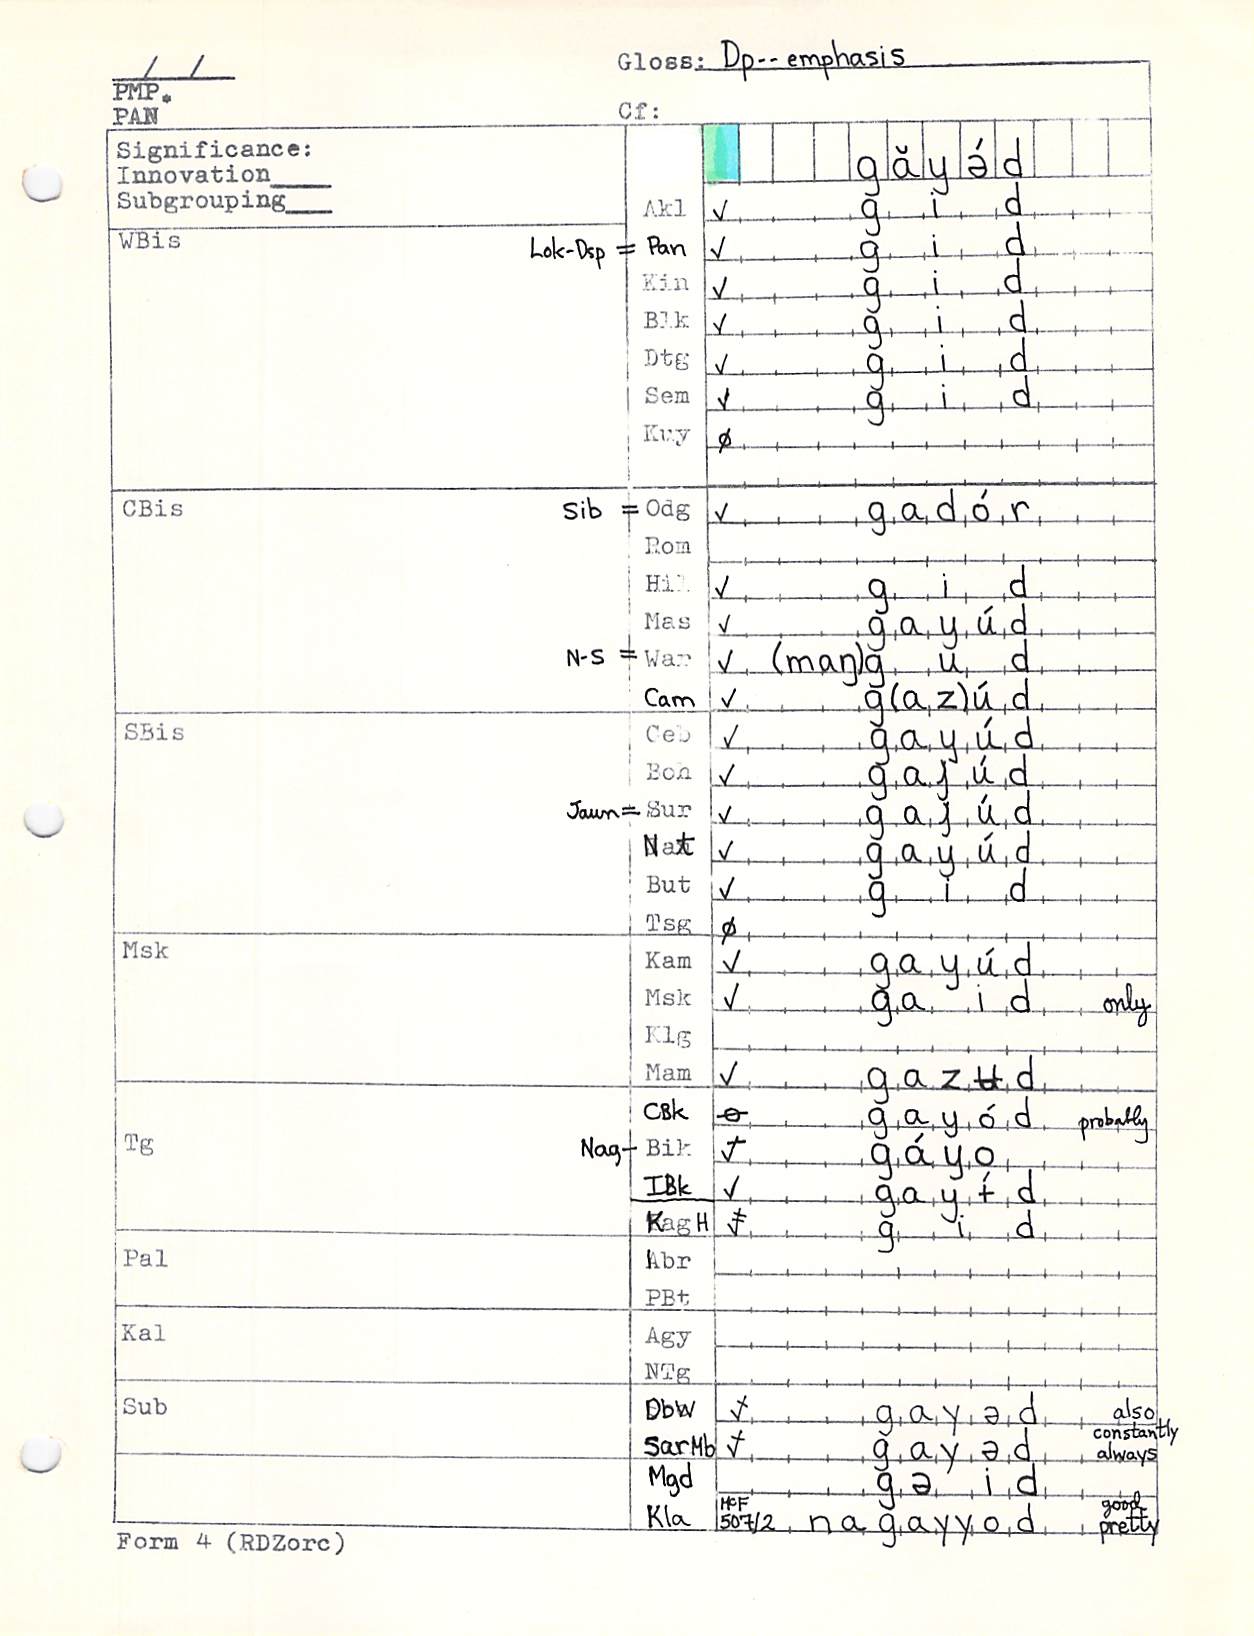 Gloss: Dp-- emphasis
/ /
PMP.
PAN
Cf:
Significance:
Innovation____
Subgrouping___
găyə́d
Akl ✓ g i d
WBis Lok-Dsp = Pan ✓ g i d
Kin ✓ g i d
Blk ✓ g i d
Dtg ✓ g i d
Sem ✓ g i d
Kuy ø
CBis Sib = Odg ✓ gadór
Rom
Hil ✓ g i d
Mas ✓ gayúd
N-S = War ✓ (maŋ)g u d
Cam ✓ g(az)úd
SBis Ceb ✓ gayúd
Boh ✓ gaɟúd
Jaun = Sur ✓ gaɟúd
Nat ✓ gayúd
But ✓ g i d
Tsg ø
Msk Kam ✓ gayúd
Msk ✓ ga id only
Klg
Mam ✓ gazʉd
CBk ɵ gayód probably
Tg Nag- Bik ✓ gáyo
IBk ✓ gayɨ́d
KagH ✓ g i d
Pal Abr
PBt
Kal Agy
NTg
Sub DbW ✓ gayəd also
constantly
SarMb ✓ gayəd always
Mgd gə id
Kla McF 507/2 nagayyod good pretty
Form 4 (RDZorc)